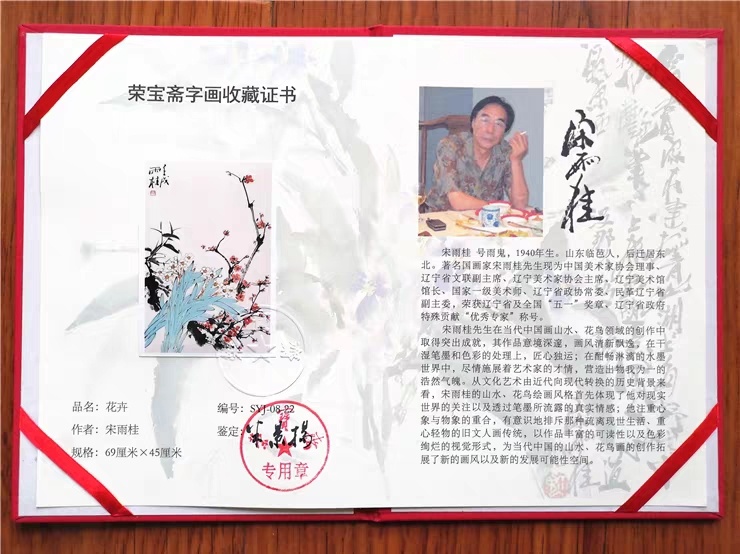 荣宝斋字画收藏证书
壬戌
雨桂
品名：花卉
编号：SYJ-08-22
作者：宋雨桂
鉴定：
规格：69厘米×45厘米
专用章
宋雨桂
宋雨桂 号雨鬼，1940年生。山东临邑人，后迁居东
北。著名国画家宋雨桂先生现为中国美术家协会理事、
辽宁省文联副主席，辽宁美术家协会主席，辽宁美术馆
馆长、国家一级美术师、辽宁省政协常委，民革辽宁省
副主委，荣获辽宁省及全国“五一”奖章、辽宁省政府
特殊贡献“优秀专家”称号。
宋雨桂先生在当代中国画山水、花鸟领域的创作中
取得突出成就，其作品意境深邃，画风清新飘逸，在干
湿笔墨和色彩的处理上，匠心独运；在酣畅淋漓的水墨
世界中，尽情施展着艺术家的才情，营造出物我为一的
浩然气魄。从文化艺术由近代向现代转换的历史背景来
看，宋雨桂的山水、花鸟绘画风格首先体现了他对现实
世界的关注以及透过笔墨所流露的真实情感；他注重心
象与物象的重合，有意识地排斥那种疏离现世生活、重
心轻物的旧文人画传统，以作品丰富的可读性以及色彩
绚烂的视觉形式，为当代中国的山水、花鸟画的创作拓
展了新的画风以及新的发展可能性空间。